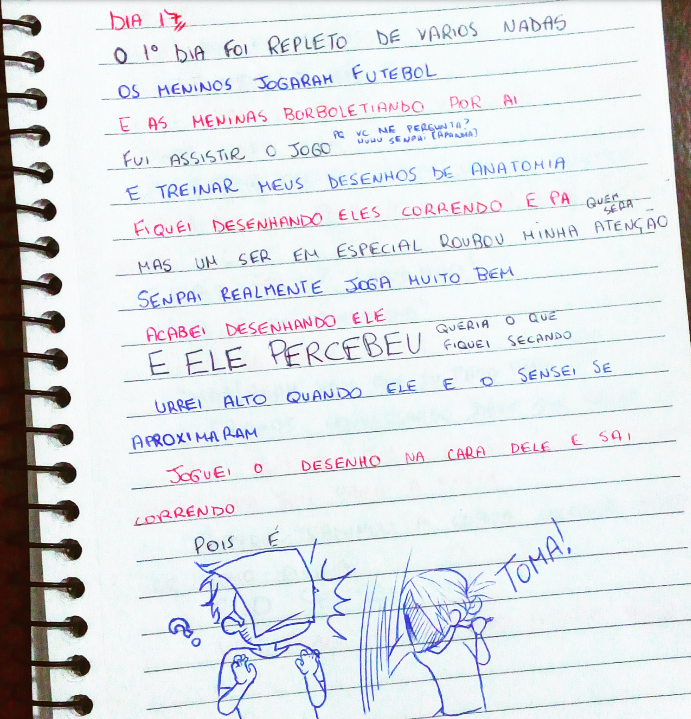 DIA 17
O 1º DIA FOI REPLETO DE VARIOS NADAS
OS MENINOS JOGARAM FUTEBOL
E AS MENINAS BORBOLETIANDO POR AI
FUI ASSISTIR O JOGO
PQ VC ME PERGUNTA?
HUHU SENPAI (APANHA)
E TREINAR MEUS DESENHOS DE ANATOMIA
FIQUEI DESENHANDO ELES CORRENDO E PA
QUEM SERA
MAS UM SER EM ESPECIAL ROUBOU MINHA ATENÇAO
SENPAI REALMENTE JOGA MUITO BEM
ACABEI DESENHANDO ELE
E ELE PERCEBEU
QUERIA O QUE
FIQUEI SECANDO
URREI ALTO QUANDO ELE E O SENSEI SE
APROXIMARAM
JOGUEI O DESENHO NA CARA DELE E SAI
CORRENDO
POIS É
?
TOMA!